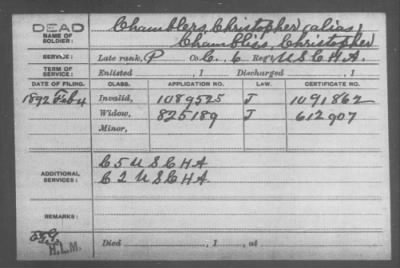 DEAD
NAME OF SOLDIER:
Chamblers, Christopher (alias)
Chambliss, Christopher
SERVICE:
Late rank, P Co. C, 6 Reg't U S C H A.
TERM OF SERVICE:
Enlisted , 1 Discharged , 1
DATE OF FILING. CLASS. APPLICATION NO. LAW. CERTIFICATE NO.
1892 Feb 4 Invalid, 1089525 J 1091862
Widow, 825189 J 612907
Minor,
ADDITIONAL SERVICES:
C 5 U S C H A
C 2 U S C H A
REMARKS:
H.L.M.
Died , 1 , at